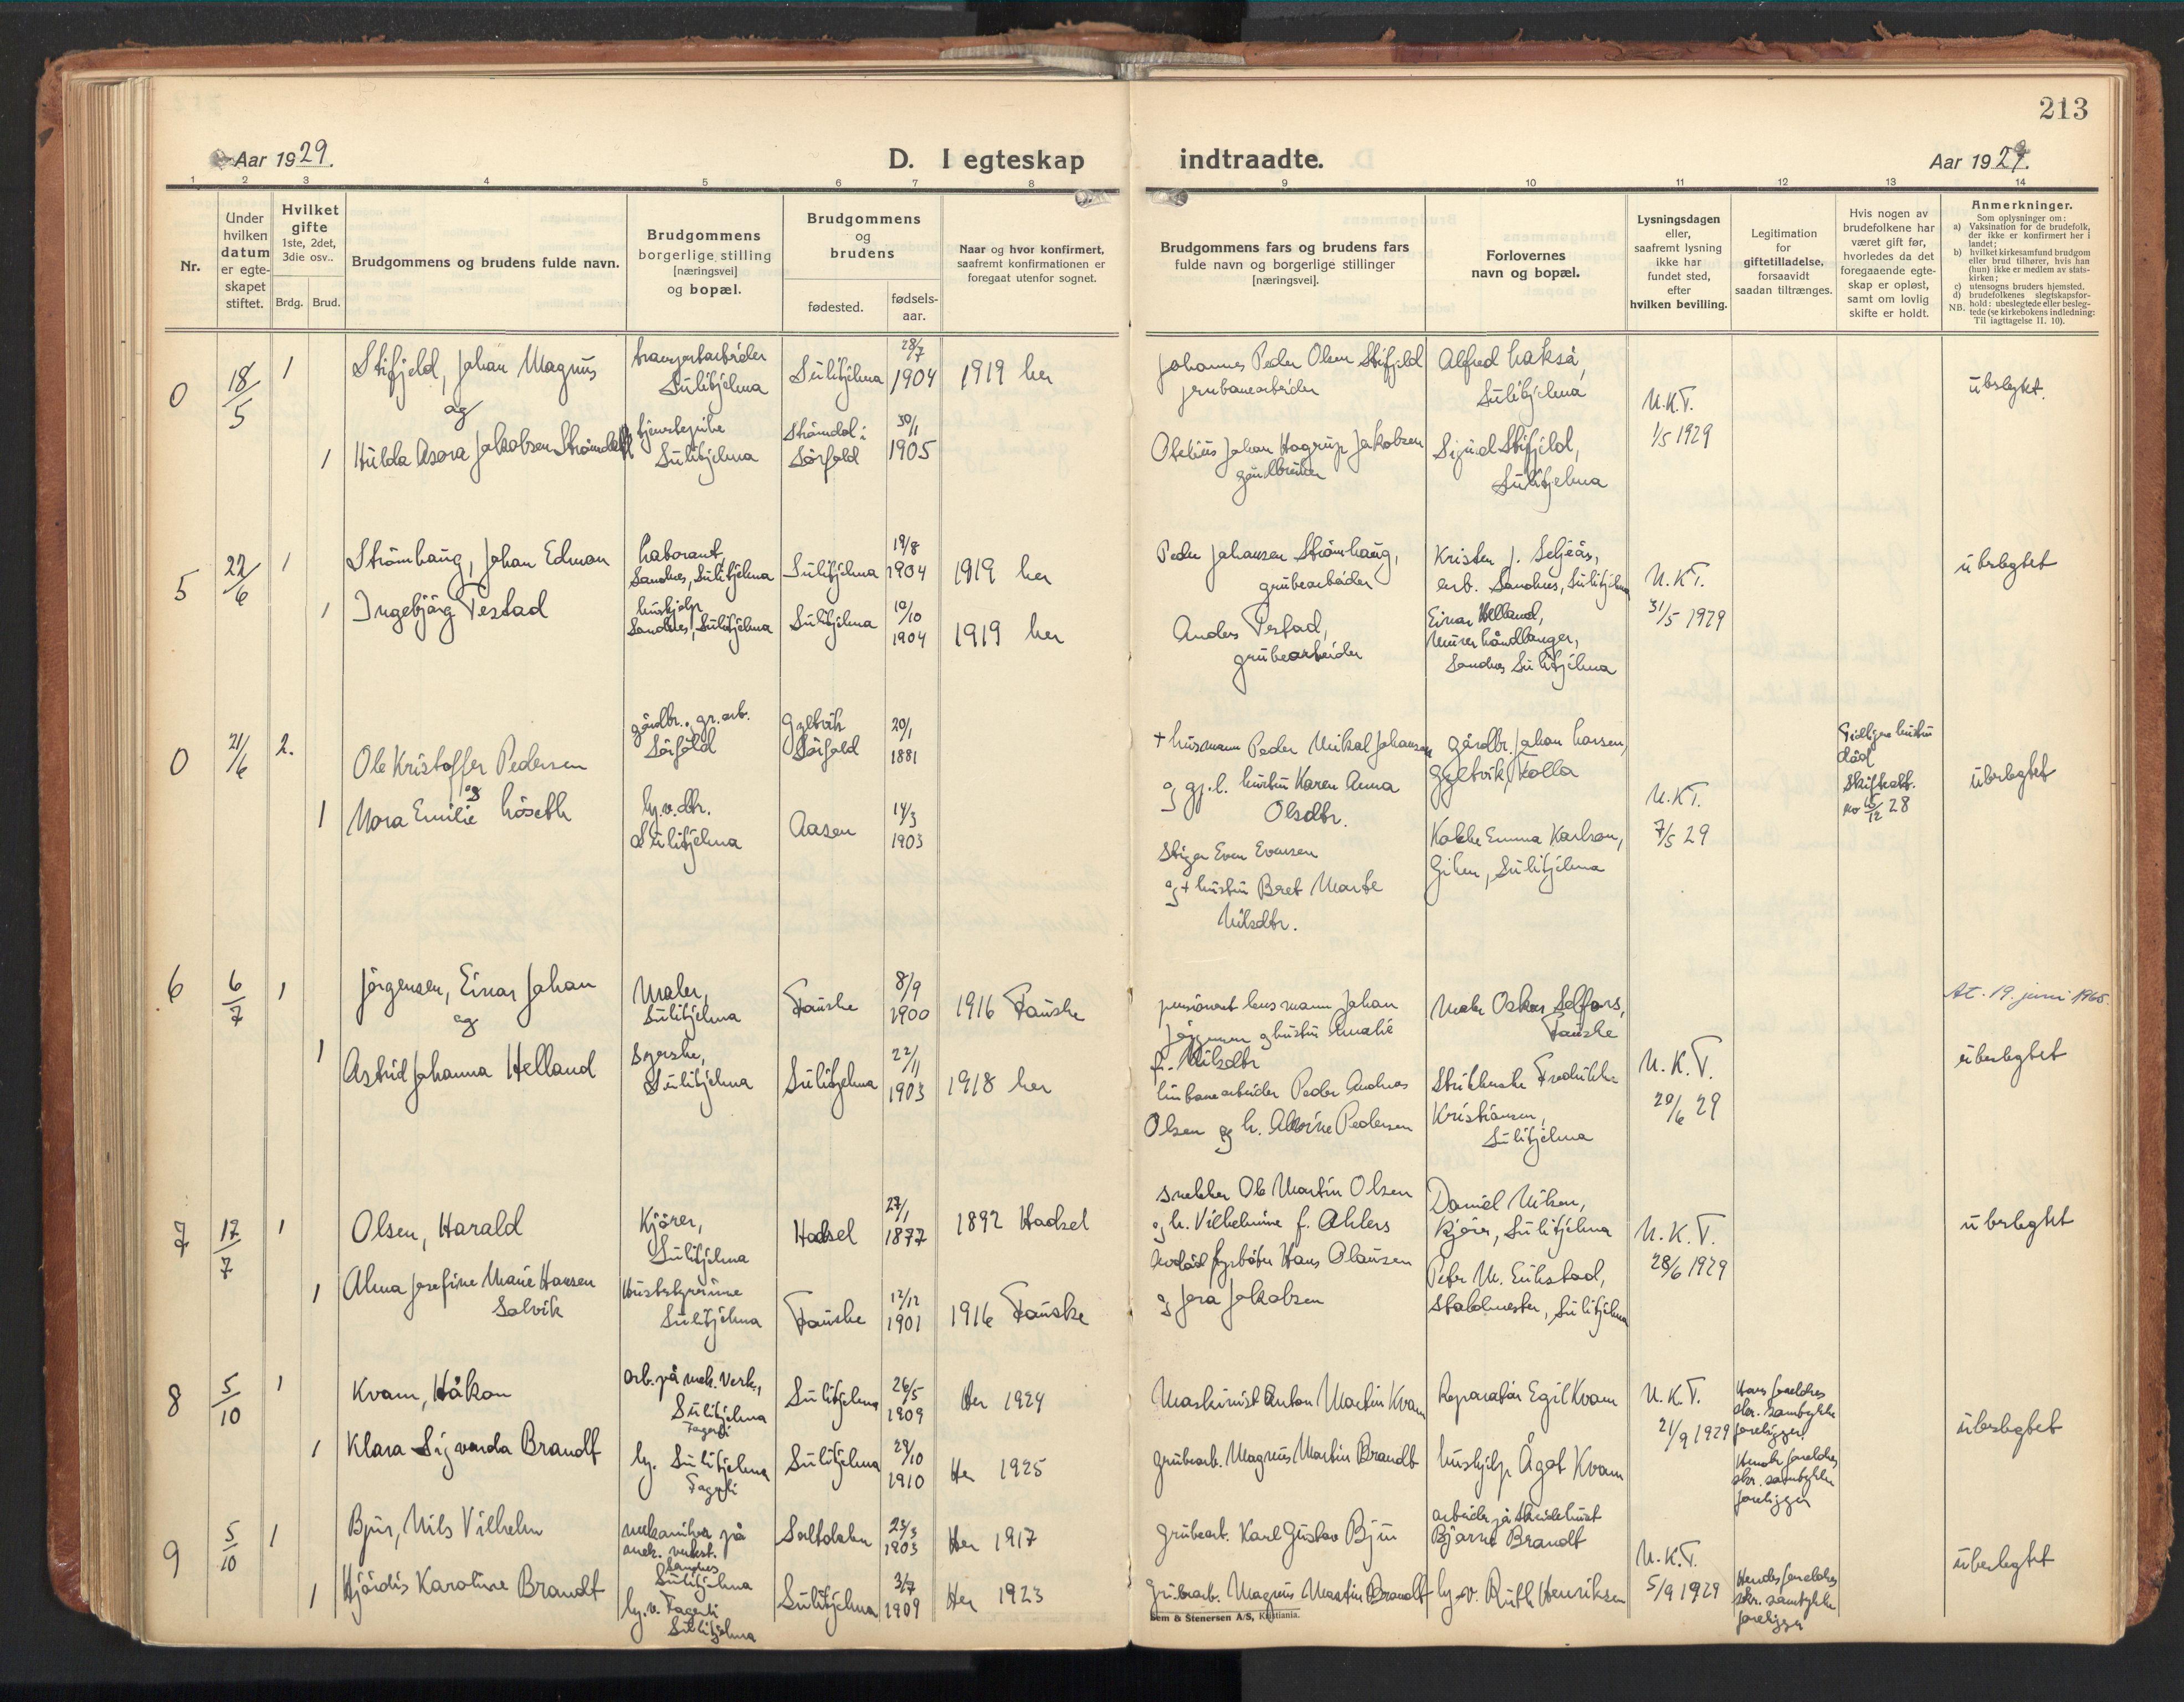 213
Aar 1929.
D. I egteskap
indtraadte.
Aar 1929.
1 2 3 4 5 6 7 8 9 10 11 12 13 14
Nr.
Under
hvilken
datum
er egte-
skapet
stiftet.
Hvilket
gifte
1ste, 2det,
3die osv..
Brdg. Brud.
Brudgommens og brudens fulde navn.
Brudgommens
borgerlige stilling
[næringsvei]
og bopæl.
Brudgommens
og
brudens
fødested.
fødsels-
aar.
Naar og hvor konfirmert,
saafremt konfirmationen er
foregaat utenfor sognet.
Brudgommens fars og brudens fars
fulde navn og borgerlige stillinger
[næringsvei].
Forlovernes
navn og bopæl.
Lysningsdagen
eller,
saafremt lysning
ikke har
fundet sted,
efter
hvilken bevilling.
Legitimation
for
giftetilladelse,
forsaavidt
saadan tiltrænges.
Hvis nogen av
brudefolkene har
været gift før,
hvorledes da det
foregaaende egte-
skap er opløst,
samt om lovlig
skifte er holdt.
Anmerkninger.
Som oplysninger om:
a) Vaksination for de brudefolk,
der ikke er konfirmert her i
landet;
b) hvilket kirkesamfund brudgom
eller brud tilhører, hvis han
(hun) ikke er medlem av stats-
kirken;
c) utensogns bruders hjemsted.
d) brudefolkenes slegtskapsfor-
hold: ubeslegtede eller besleg-
NB. tede (se kirkebokens indledning:
Til iagttagelse II. 10).
0 18/5 1 Stifjeld, Johan Magnus
transportarbeider
Sulitjelma
Sulitjelma 28/7 1904 1919 her
Johannes Peder Olsen Stifjeld
grubanearbeider
Alfred Lakså,
Sulitjelma
U.K.T.
1/5 1929
og
1 Hulda Asora Jakobsen Strömdal
tjenestepike
Sulitjelma
Strömdal i
Sörfold
30/1
1905
Obelius Johan Hagrup Jakobsen
gårdbruker
Sigurd Stifjeld,
Sulitjelma
5 22/6 1 Strömhaug, Johan Edman
Laborant,
Sandnes, Sulitjelma
Sulitjelma 19/8 1904 1919 her
Peder Johansen Strömhaug,
grubearbeider
Kristen J. Seljeås,
arb. Sandnes, Sulitjelma
U.K.T.
31/5 1929
ubeslegtet
1 Ingebjörg Festad
hushjelp
Sandnes, Sulitjelma
Sulitjelma 10/10 1904 1919 her
Anders Festad,
grubearbeider
Einar Helland,
Murer håndlanger,
Sandnes Sulitjelma
0 21/6 2. Ole Kristoffer Pedersen
gårdbr., gr.arb.
Sörfold
Gyltvik
Sörfold
20/1
1881
+ husmann Peder Mikal Johansen
og gj.l. hustru Karen Anna
Olsdtr.
gårdbr. Johan Larsen,
Gyltvik, Rolla
U.K.T.
7/5 29
Tidligere hustru
död
Skifteatt.
av 15/12 28
ubeslegtet
og
1 Nora Emilie Löseth
hj.v.dtr.
Sulitjelma
Aasen 14/3 1903
Stiger Even Evensen
og + hustru Beret Marte
Nilsdtr.
Kokke Emma Karlsen,
Giken, Sulitjelma
6 6/7 1 Jörgensen, Einar Johan
Maler,
Sulitjelma
Fauske 8/9 1900 1916 Fauske
pensionert lensmann Johan
Jörgensen og hustru Amalie
f. Nilsdtr
Maler Oskar Selfors,
Fauske
At. 19. juni 1965.
og
1 Astrid Johanna Helland
Syerske,
Sulitjelma
Sulitjelma 22/11 1903 1918 her
linbanearbeider Peder Andreas
Olsen og h. Alvine Pedersen
Strikkerske Fredrikke
Kristiansen,
Sulitjelma
U.K.T.
20/6 29
ubeslegtet
7 17/7 1 Olsen, Harald
Kjörer,
Sulitjelma
Hadsel 27/1 1877 1892 Hadsel
snekker Ole Martin Olsen
og h. Vilhelmine f. Ahlers
Daniel Nilsen,
kjörer, Sulitjelma
U.K.T.
28/6 1929
ubeslegtet
1 Alma Josefine Marie Hansen
Solvik
Husbestyrerinne
Sulitjelma
Fauske 12/12 1901 1916 Fauske
Hans Olausen
og Jora Jakobsen
Peter M. Eikstad,
Staldmester, Sulitjelma
8 5/10 1 Kvam, Håkon
arb. på mek. Verk.,
Sulitjelma
Fagerli
Sulitjelma 26/5 1909 Her 1924
Maskinist Anton Martin Kvam
Reparatör Egil Kvam
U.K.T.
21/9 1929
Hans foreldres
skr. samtykke
foreligger.
ubeslegtet
1 Klara Sigvarda Brandt
hj. Sulitjelma
Fagerli
Sulitjelma 29/10 1910 Her 1925
grubearb. Magnus Martin Brandt
hushjelp Ågot Kvam
Hendes foreldres
skr. samtykke
foreligger
9 5/10 1 Bjur, Nils Vilhelm
mekaniker på
mek. verkst.
Sandnes
Sulitjelma
Saltdalen 25/3 1903 Her 1917
Grubearb. Karl Gustav Bjur
arbeider på Skeidehuset
Bjarne Brandt
U.K.T.
5/9 1929
ubeslegtet
1 Hjördis Karoline Brandt
hj.v. Fagerli
Sulitjelma
Sulitjelma 3/7 1909 Her 1923
Grubearb. Magnus Martin Brandt
hj.v. Ruth Henriksen
Hendes foreldres
skr. samtykke
foreligger
Sem & Stenersen A/S, Kristiania.